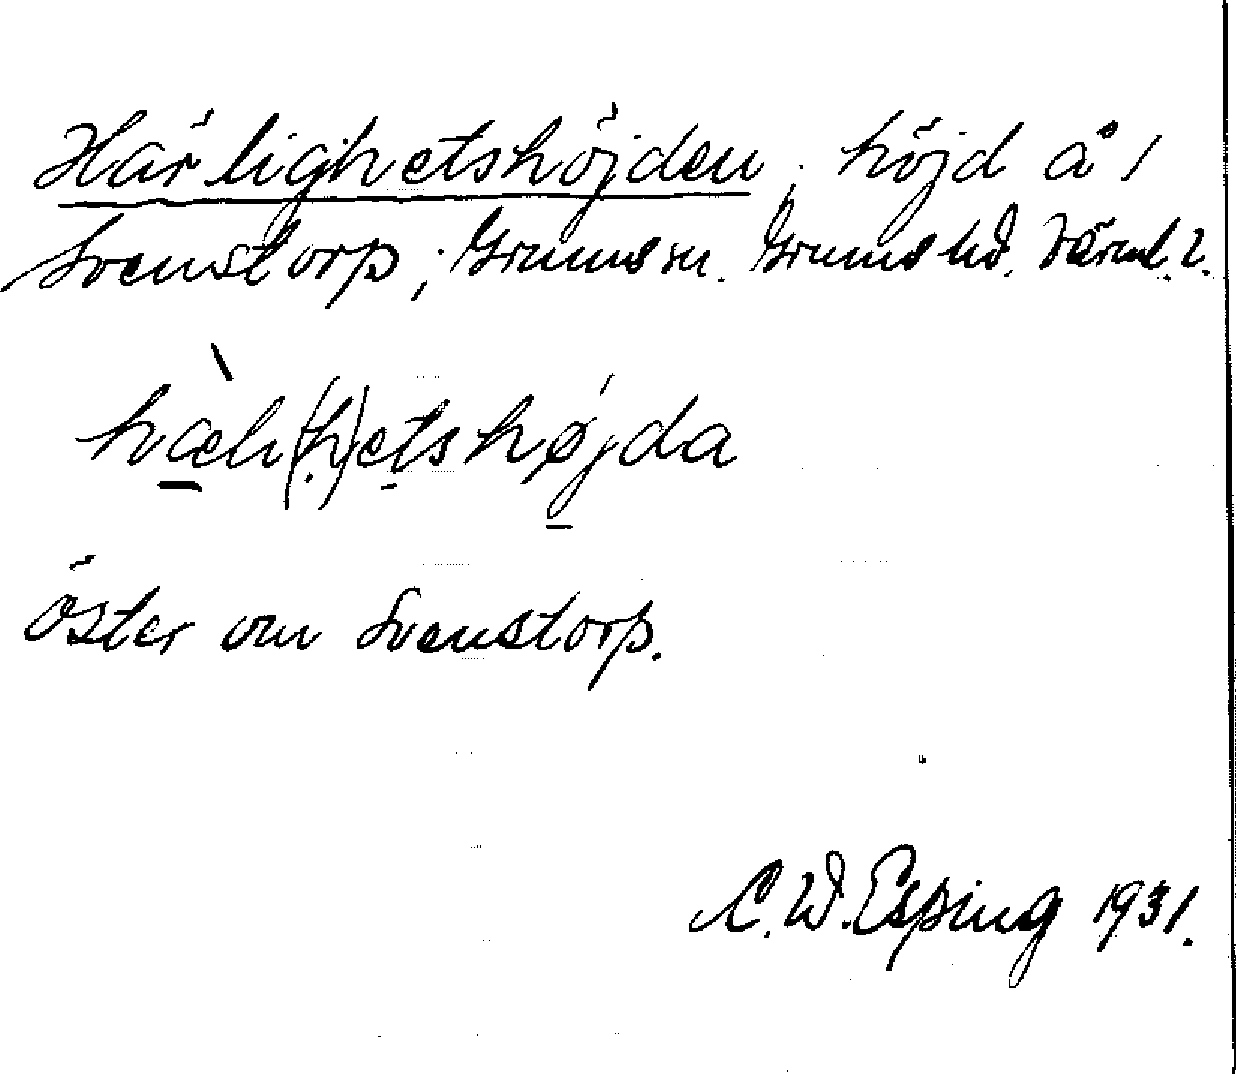 Härlighetshöjden, höjd å /
Svenstorp, Grums sn. Grums hd. Värml. l.
hæli(h)etshøjda
öster om Svenstorp.
C. W. Esping 1931.